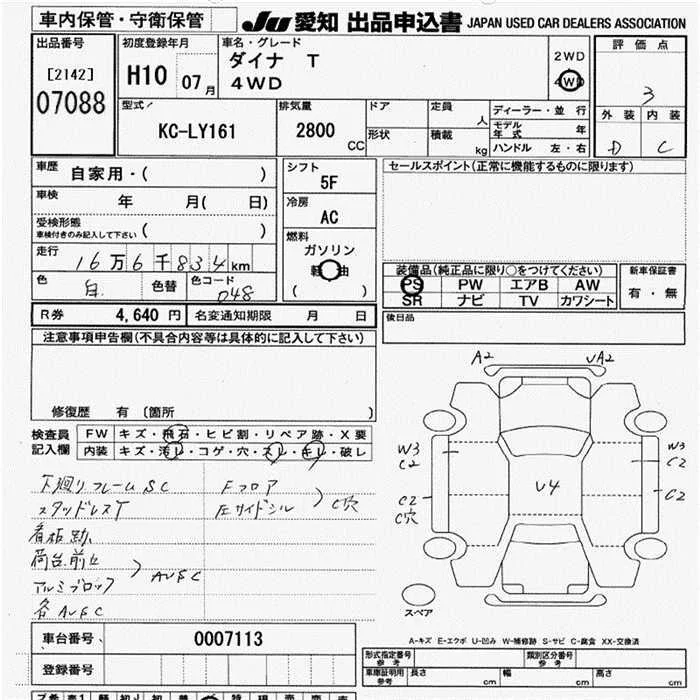 車内保管・守衛保管
JU 愛知 出品申込書 JAPAN USED CAR DEALERS ASSOCIATION
出品番号
[2142]
07088
初度登録年月
H10 07月
車名・グレード
ダイナ T
4WD
2WD
4WD
評価点
3
外装 内装
D C
型式
KC-LY161
排気量
2800 CC
ドア
形状
定員 人
積載 kg
ディーラー・並行
モデル年式 年
ハンドル 左・右
車歴
自家用・( )
車検 年 月( 日)
受検形態
車検付きのみ記入して下さい ( )
走行
16万6千834km
色 白 色替 色コード 048
シフト
5F
冷房
AC
燃料
ガソリン
軽油
( )
セールスポイント(正常に機能するものに限ります)
装備品(純正品に限り○をつけてください)
PS PW エアB AW
SR ナビ TV カワシート
新車保証書
有・無
R券 4,640円 名変通知期限 月 日
後日品
注意事項申告欄(不具合内容等は具体的に記入して下さい)
修復歴 有 〔箇所 〕
検査員
記入欄
FW キズ・飛石・ヒビ割・リペア跡・X要
内装 キズ・汚レ・コゲ・穴・スレ・キレ・破レ
下廻りフレームSC
スタッドレスT
看板跡
荷台前立
アルミブロック
AUSC
各AUSC
Fフロア
左サイドシル
C穴
A2 UA2
W3
C2
W3
C2
U4
C2
C穴
C2
スペア
A-キズ E-エクボ U-凹み W-補修跡 S-サビ C-腐食 XX-交換済
車台番号 0007113
登録番号
形式指定番号
参考
類別区分番号
参考
車庫証明用
参考
長さ 幅 高さ